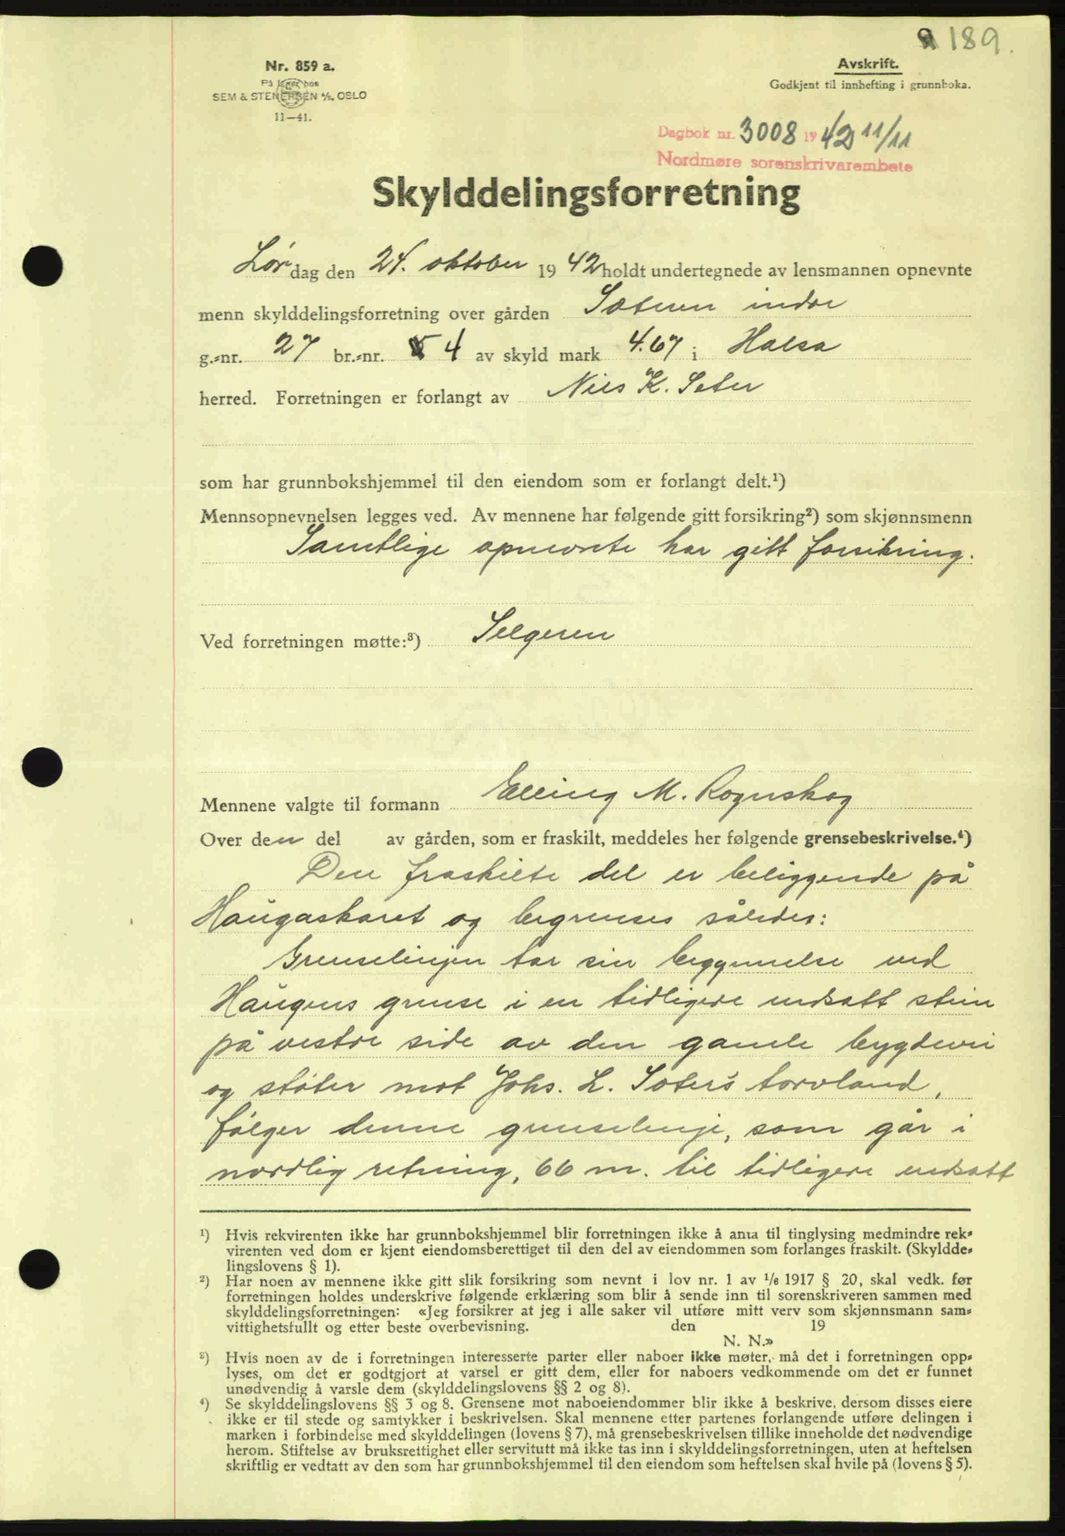 189.
Nr. 859 a.
På lager hos
SEM & STENERSEN A/S, OSLO
11—41.
Avskrift.
Godkjent til innhefting i grunnboka.
Dagbok nr. 3008 1942 11/11
Nordmøre sorenskrivarembete
Skylddelingsforretning
Lørdag den 24. oktober 1942 holdt undertegnede av lensmannen opnevnte
menn skylddelingsforretning over gården Sæteren indre
g.-nr. 27 br.-nr. 4 av skyld mark 4.67 i Halsa
herred. Forretningen er forlangt av Nils K. Seter
som har grunnbokshjemmel til den eiendom som er forlangt delt.¹)
Mennsopnevnelsen legges ved. Av mennene har følgende gitt forsikring²) som skjønnsmenn
Samtlige opnevnte har gitt forsikring.
Ved forretningen møtte:³) Selgeren
Mennene valgte til formann Elling M. Rognskog
Over den del av gården, som er fraskilt, meddeles her følgende grensebeskrivelse.⁴)
Den fraskilte del er beliggende på
Haugaskaret og begrenses således:
Grenselinjen tar sin begynnelse ved
Haugens grense i en tidligere nedsatt stein
på vestre side av den gamle bygdevei
og støter mot Johs. L. Sæter's torvland,
følger denne grenselinje, som går i
nordlig retning, 66 m. til tidligere nedsatt
¹) Hvis rekvirenten ikke har grunnbokshjemmel blir forretningen ikke å anta til tinglysing medmindre rek-
virenten ved dom er kjent eiendomsberettiget til den del av eiendommen som forlanges fraskilt. (Skyldde-
lingslovens § 1).
²) Har noen av mennene ikke gitt slik forsikring som nevnt i lov nr. 1 av 1/6 1917 § 20, skal vedk. før
forretningen holdes underskrive følgende erklæring som blir å sende inn til sorenskriveren sammen med
skylddelingsforretningen: «Jeg forsikrer at jeg i alle saker vil utføre mitt verv som skjønnsmann sam-
vittighetsfullt og etter beste overbevisning. den 19
N. N.»
³) Hvis noen av de i forretningen interesserte parter eller naboer ikke møter, må det i forretningen opp-
lyses, om det er godtgjort at varsel er gitt dem, eller for naboers vedkommende om det er funnet
unødvendig å varsle dem (skylddelingslovens §§ 2 og 8).
⁴) Se skylddelingslovens §§ 3 og 8. Grensene mot naboeiendommer blir ikke å beskrive, dersom disses eiere
ikke er til stede og samtykker i beskrivelsen. Skal mennene etter partenes forlangende utføre delingen i
marken i forbindelse med skylddelingen (lovens § 7), må grensebeskrivelsen tillike inneholde det nødvendige
herom. Stiftelse av bruksrettighet eller servitutt må ikke tas inn i skylddelingsforretningen, uten at heftelsen
skriftlig er vedtatt av den som har grunnbokshjemmel til den eiendom som heftelsen skal hvile på (lovens § 5).